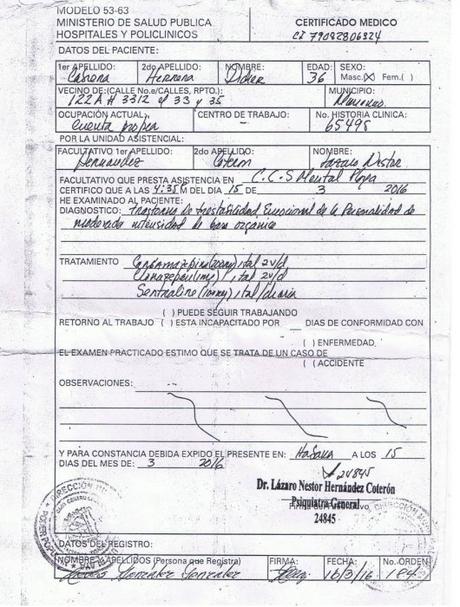 MODELO 53-63
MINISTERIO DE SALUD PUBLICA
HOSPITALES Y POLICLINICOS
CERTIFICADO MEDICO
CI 79082806324
DATOS DEL PACIENTE:
1er APELLIDO: 2do APELLIDO: NOMBRE: EDAD: SEXO:
Cabrera Herrera Didier 36 Masc.(X) Fem.( )
VECINO DE:(CALLE No.e/CALLES, RPTO.): MUNICIPIO:
122 A # 3312 e/ 33 y 35 Marianao
OCUPACIÓN ACTUAL: CENTRO DE TRABAJO: No. HISTORIA CLINICA:
Cuenta propia - 65498
POR LA UNIDAD ASISTENCIAL:
FACULTATIVO 1er APELLIDO: 2do APELLIDO: NOMBRE:
Hernández Coterón Lázaro Nestor
FACULTATIVO QUE PRESTA ASISTENCIA EN C.C.S Mental Playa
CERTIFICO QUE A LAS 4:35 M DEL DIA 15 DE 3 2016
HE EXAMINADO AL PACIENTE:
DIAGNOSTICO: trastorno de Inestabilidad Emocional de la Personalidad de
moderada intensidad de base orgánica
TRATAMIENTO Carbamazepina 1 tab 2v/d
Clonazepán 1 tab 2v/d
Sertralina 1 tab/diaria
( ) PUEDE SEGUIR TRABAJANDO
RETORNO AL TRABAJO ( ) ESTA INCAPACITADO POR DIAS DE CONFORMIDAD CON
( ) ENFERMEDAD,
EL EXAMEN PRACTICADO ESTIMO QUE SE TRATA DE UN CASO DE
( ) ACCIDENTE
OBSERVACIONES:
Y PARA CONSTANCIA DEBIDA EXPIDO EL PRESENTE EN: Habana A LOS 15
DIAS DEL MES DE 3 2016
24845
Dr. Lázaro Nestor Hernández Coterón
Psiquiatra General
24845
DATOS DEL REGISTRO:
NOMBRE Y APELLIDOS (Persona que Registra) FIRMA: FECHA: No. ORDEN
Gonzalez Gonzalez 16/3/16